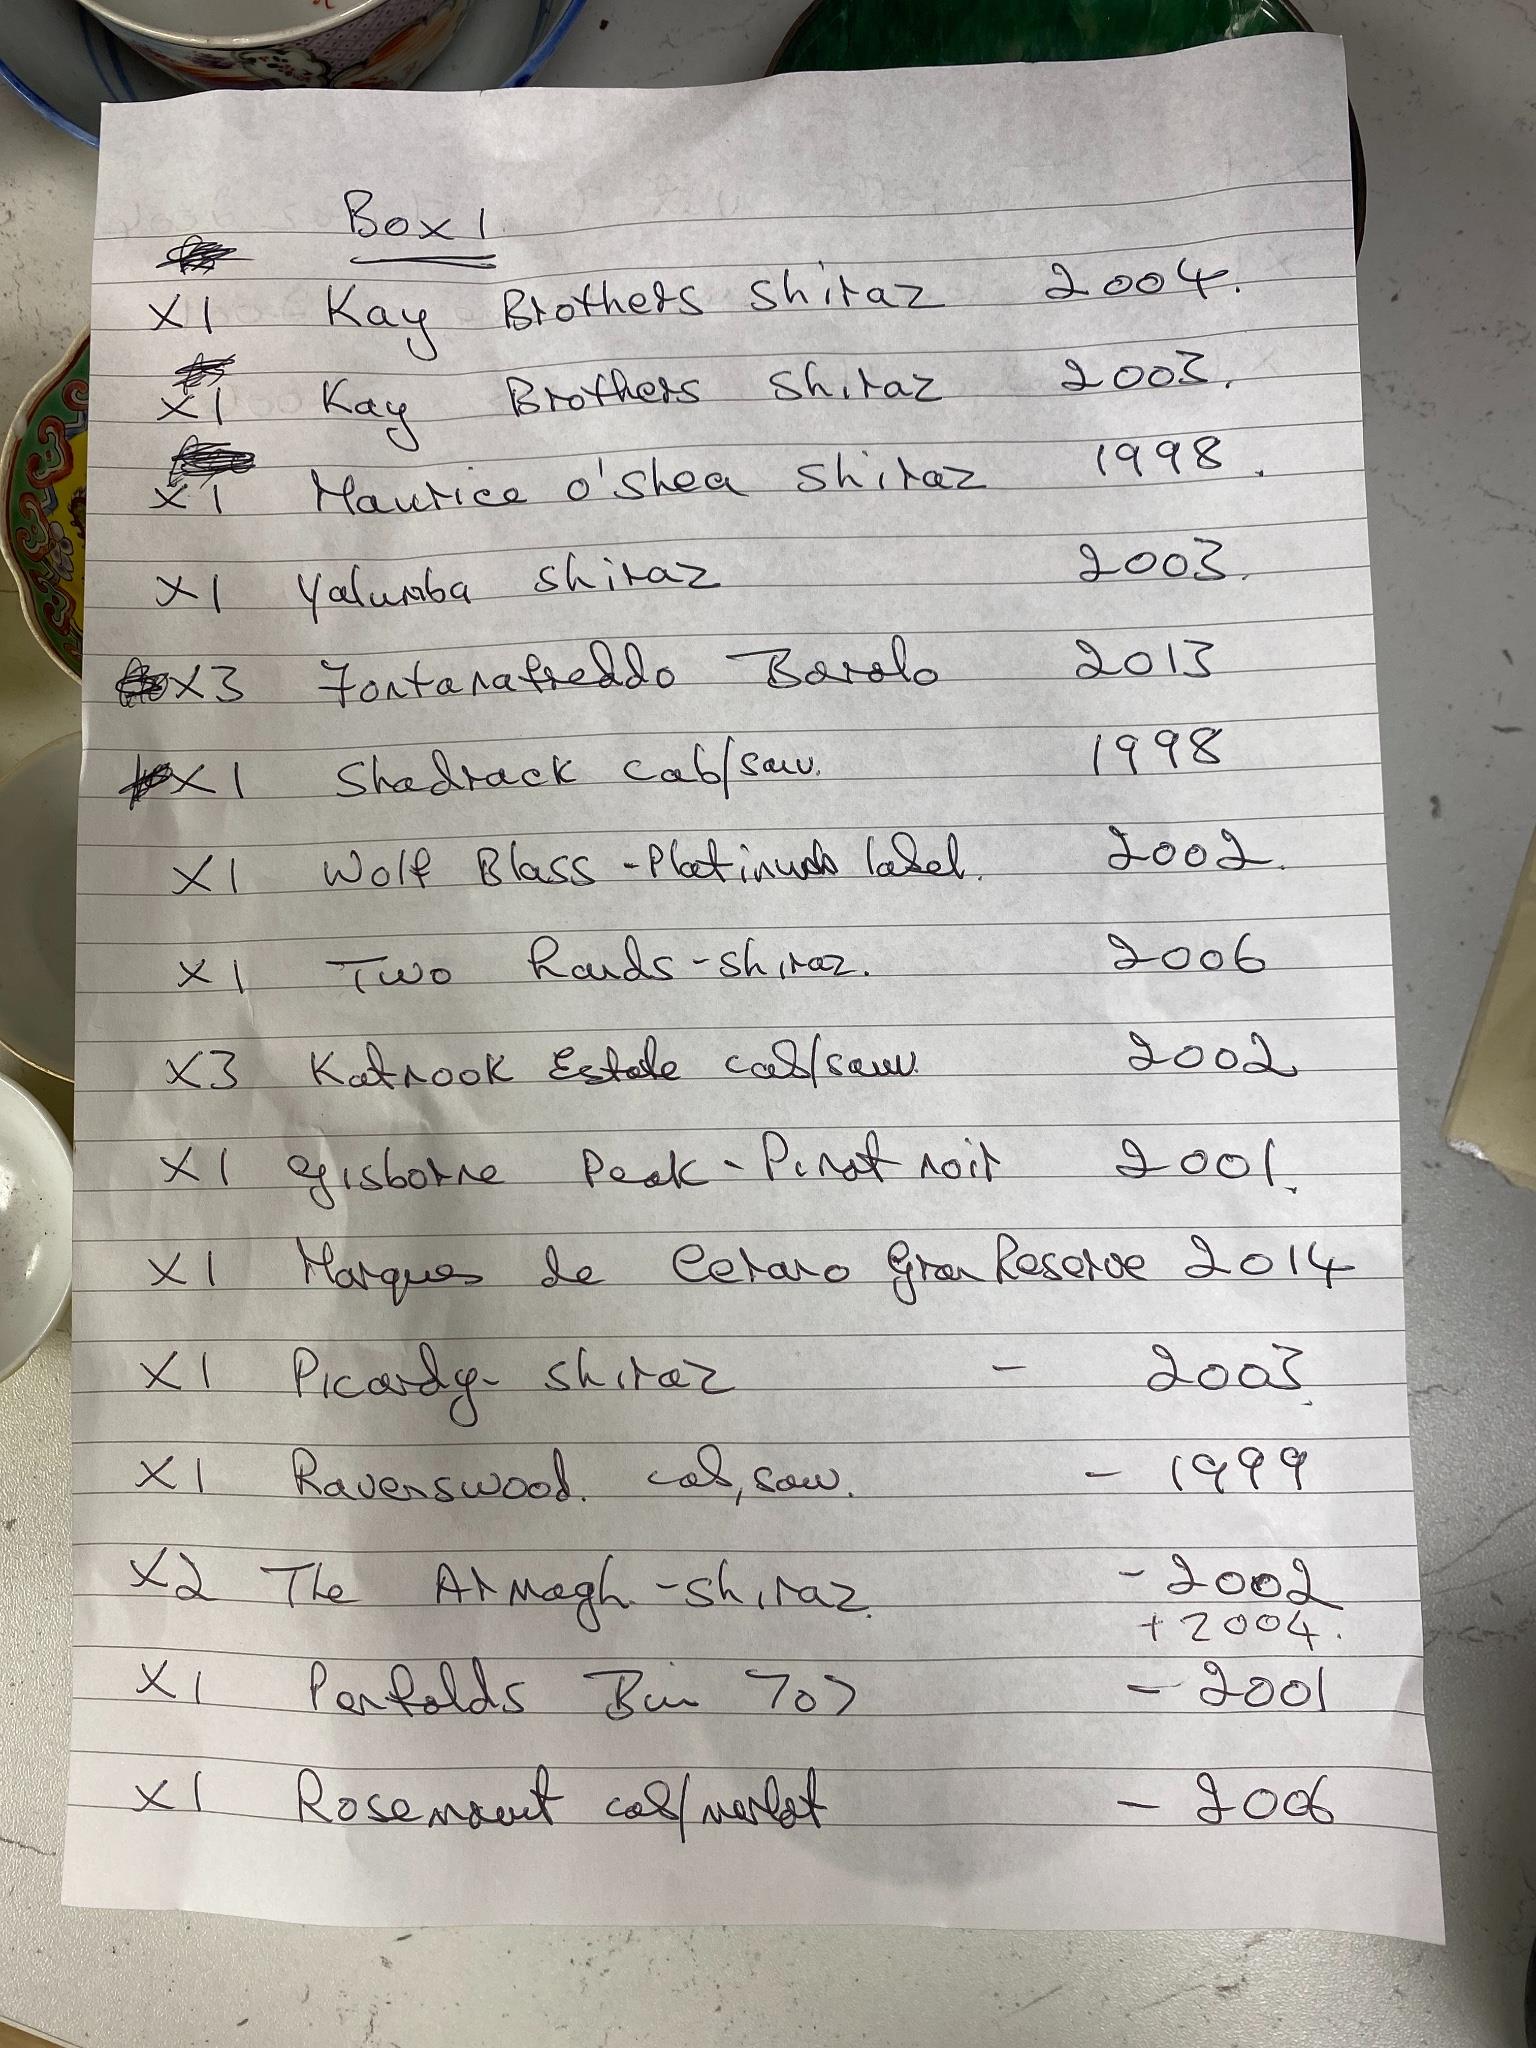 Box 1
X1 Kay Brothers Shiraz 2004.
X1 Kay Brothers Shiraz 2003.
X1 Maurice o'Shea Shiraz 1998.
X1 Yalumba Shiraz 2003.
X3 Fontanafreddo Barolo 2013
X1 Shadrack cab/sauv. 1998
X1 Wolf Blass - Platinum label. 2002.
X1 Two Hands - shiraz. 2006
X3 Katnook Estate cab/sauv. 2002
X1 Gisborne Peak - Pinot noir 2001.
X1 Marques de Cerano Gran Reserve 2014
X1 Picardy - shiraz - 2003.
X1 Ravenswood. cab, sauv. - 1999
X2 The Armagh - shiraz. - 2002
+ 2004.
X1 Penfolds Bin 707 - 2001
X1 Rosemount cab/merlot - 2006